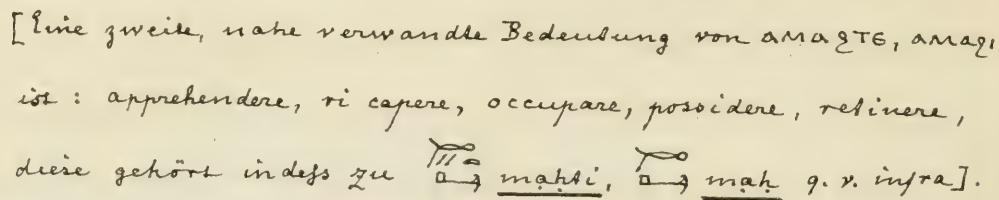 [Eine zweite, nahe verwandte Bedeutung von ⲁⲙⲁϩⲧⲉ, ⲁⲙⲁϩⲓ
ist : apprehendere, vi capere, occupare, possidere, retinere,
diese gehört indeſs zu mạḥti, mạḥ q. v. infra].